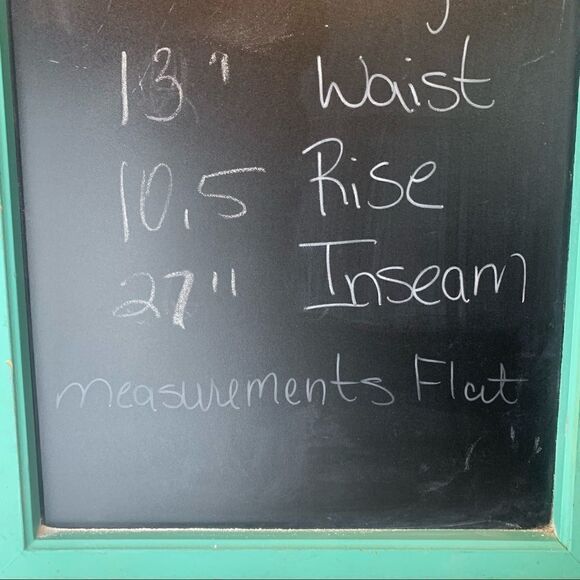 13" Waist
10.5 Rise
27" Inseam
measurements Flat